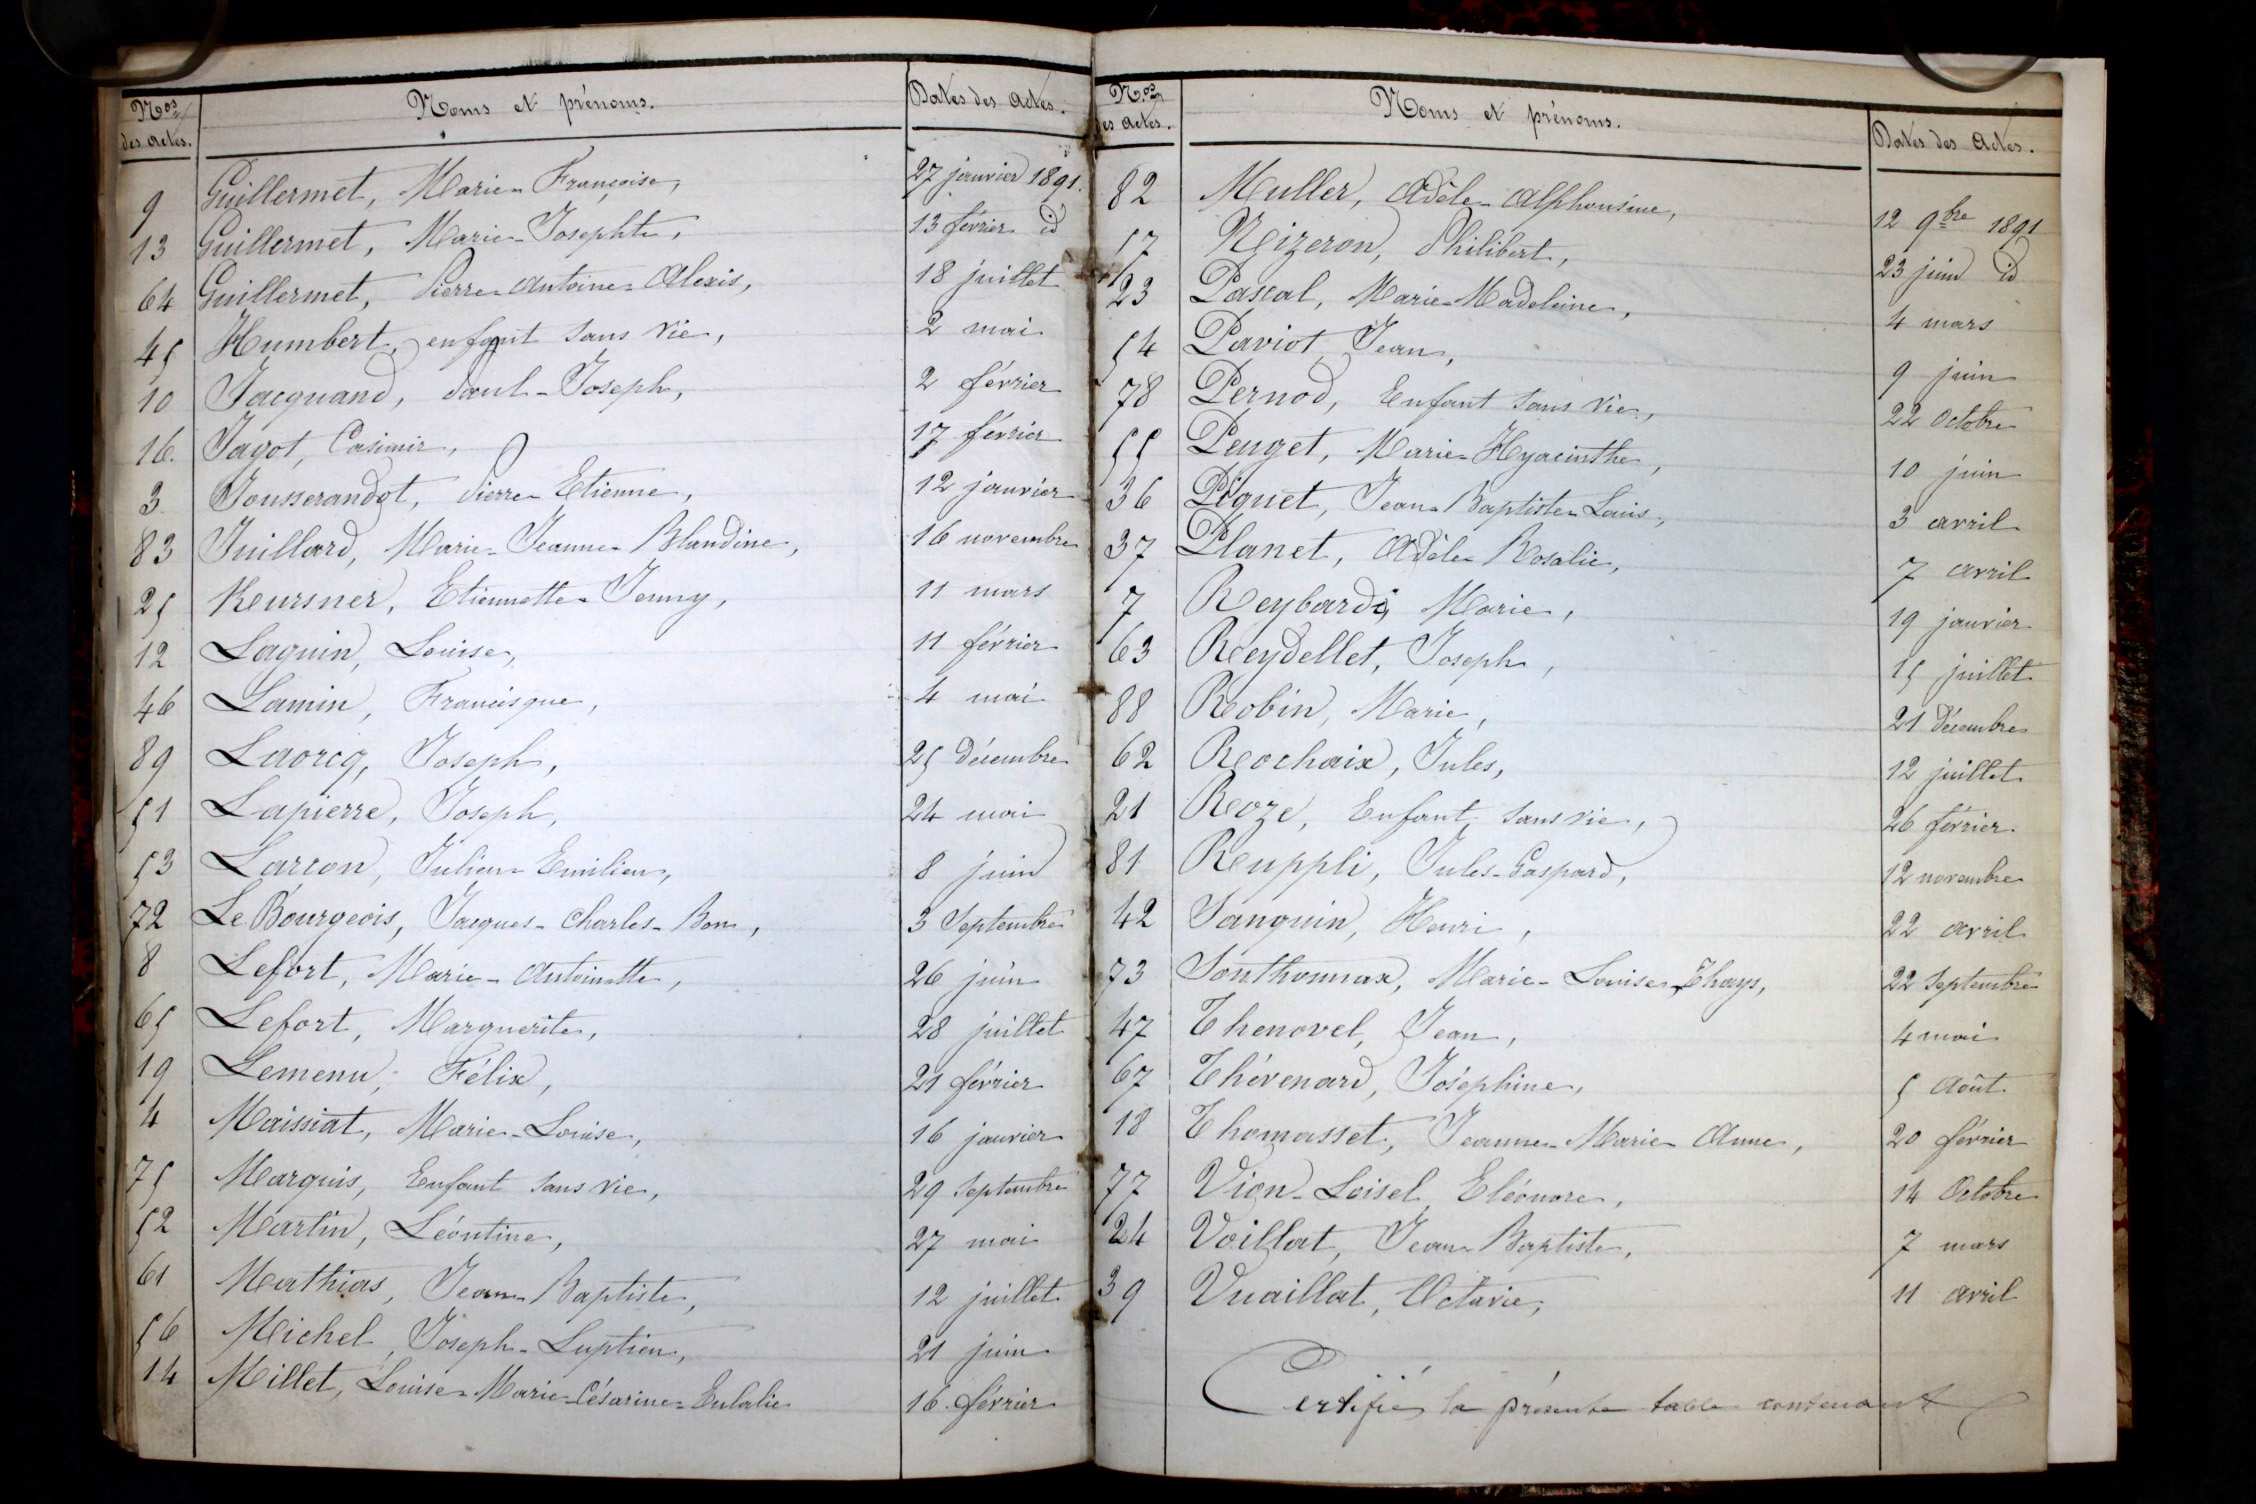 Nos des actes. Noms et prénoms. Dates des Actes.
9 Guillermet, Marie-Françoise, 27 janvier 1891.
13 Guillermet, Marie-Josephte, 13 février id
64 Guillermet, Pierre-Antoine-Alexis, 18 juillet
45 Humbert, enfant sans vie, 2 mai
10 Jacquand, Paul-Joseph, 2 février
16. Jagot, Casimir, 17 février
3 Jousserandot, Pierre-Etienne, 12 janvier
83 Juillard, Marie-Jeanne-Blandine, 16 novembre
25 Keursner, Etiennette-Jenny, 11 mars
12 Laguin, Louise, 11 février
46 Lamin, Francisque, 4 mai
89 Laorcq, Joseph, 25 décembre
51 Lapierre, Joseph, 24 mai
53 Larcon, Julien-Emilien, 8 juin
72 Le Bourgeois, Jacques-Charles-Bon, 3 Septembre
8 Lefort, Marie-Antoinette, 26 juin
65 Lefort, Marguerite, 28 juillet
19 Lemenu, Félix, 21 février
4 Maissiat, Marie-Louise, 16 janvier
75 Marquis, Enfant sans vie, 29 Septembre
52 Martin, Léontine, 27 mai
61 Mathias, Jean-Baptiste, 12 juillet
56 Michel, Joseph-Luptien, 21 juin
14 Millet, Louise-Marie-Césarine-Eulalie 16 février
Nos des actes. Noms et prénoms. Dates des Actes.
82 Muller, Adèle-Alphonsine, 12 9bre 1891
57 Nizeron, Philibert, 23 juin id
23 Pascal, Marie-Madeleine, 4 mars
54 Paviot, Jean, 9 juin
78 Pernod, Enfant sans vie, 22 Octobre
55 Peuget, Marie-Hyacinthe, 10 juin
36 Piquet, Jean-Baptiste-Louis, 3 avril
37 Planet, Adèle-Rosalie, 7 avril
7 Reybard, Marie, 19 janvier
63 Reydellet, Joseph, 15 juillet
88 Robin, Marie, 21 décembre
62 Rochaix, Jules, 12 juillet
21 Roze, Enfant sans vie, 26 février
81 Ruppli, Jules-Gaspard, 12 novembre
42 Sanguin, Henri, 22 avril
73 Sonthonnax, Marie-Louise-Thays, 22 Septembre
47 Thenovel, Jean, 4 mai
67 Thévenard, Joséphine, 5 Août
18 Thomasset, Jeanne-Marie-Anne, 20 février
77 Vion-Loisel, Eléonore, 14 Octobre
24 Voillat, Jean-Baptiste, 7 mars
39 Vuaillat, Octavie, 11 avril
Certifié la présente table contenant